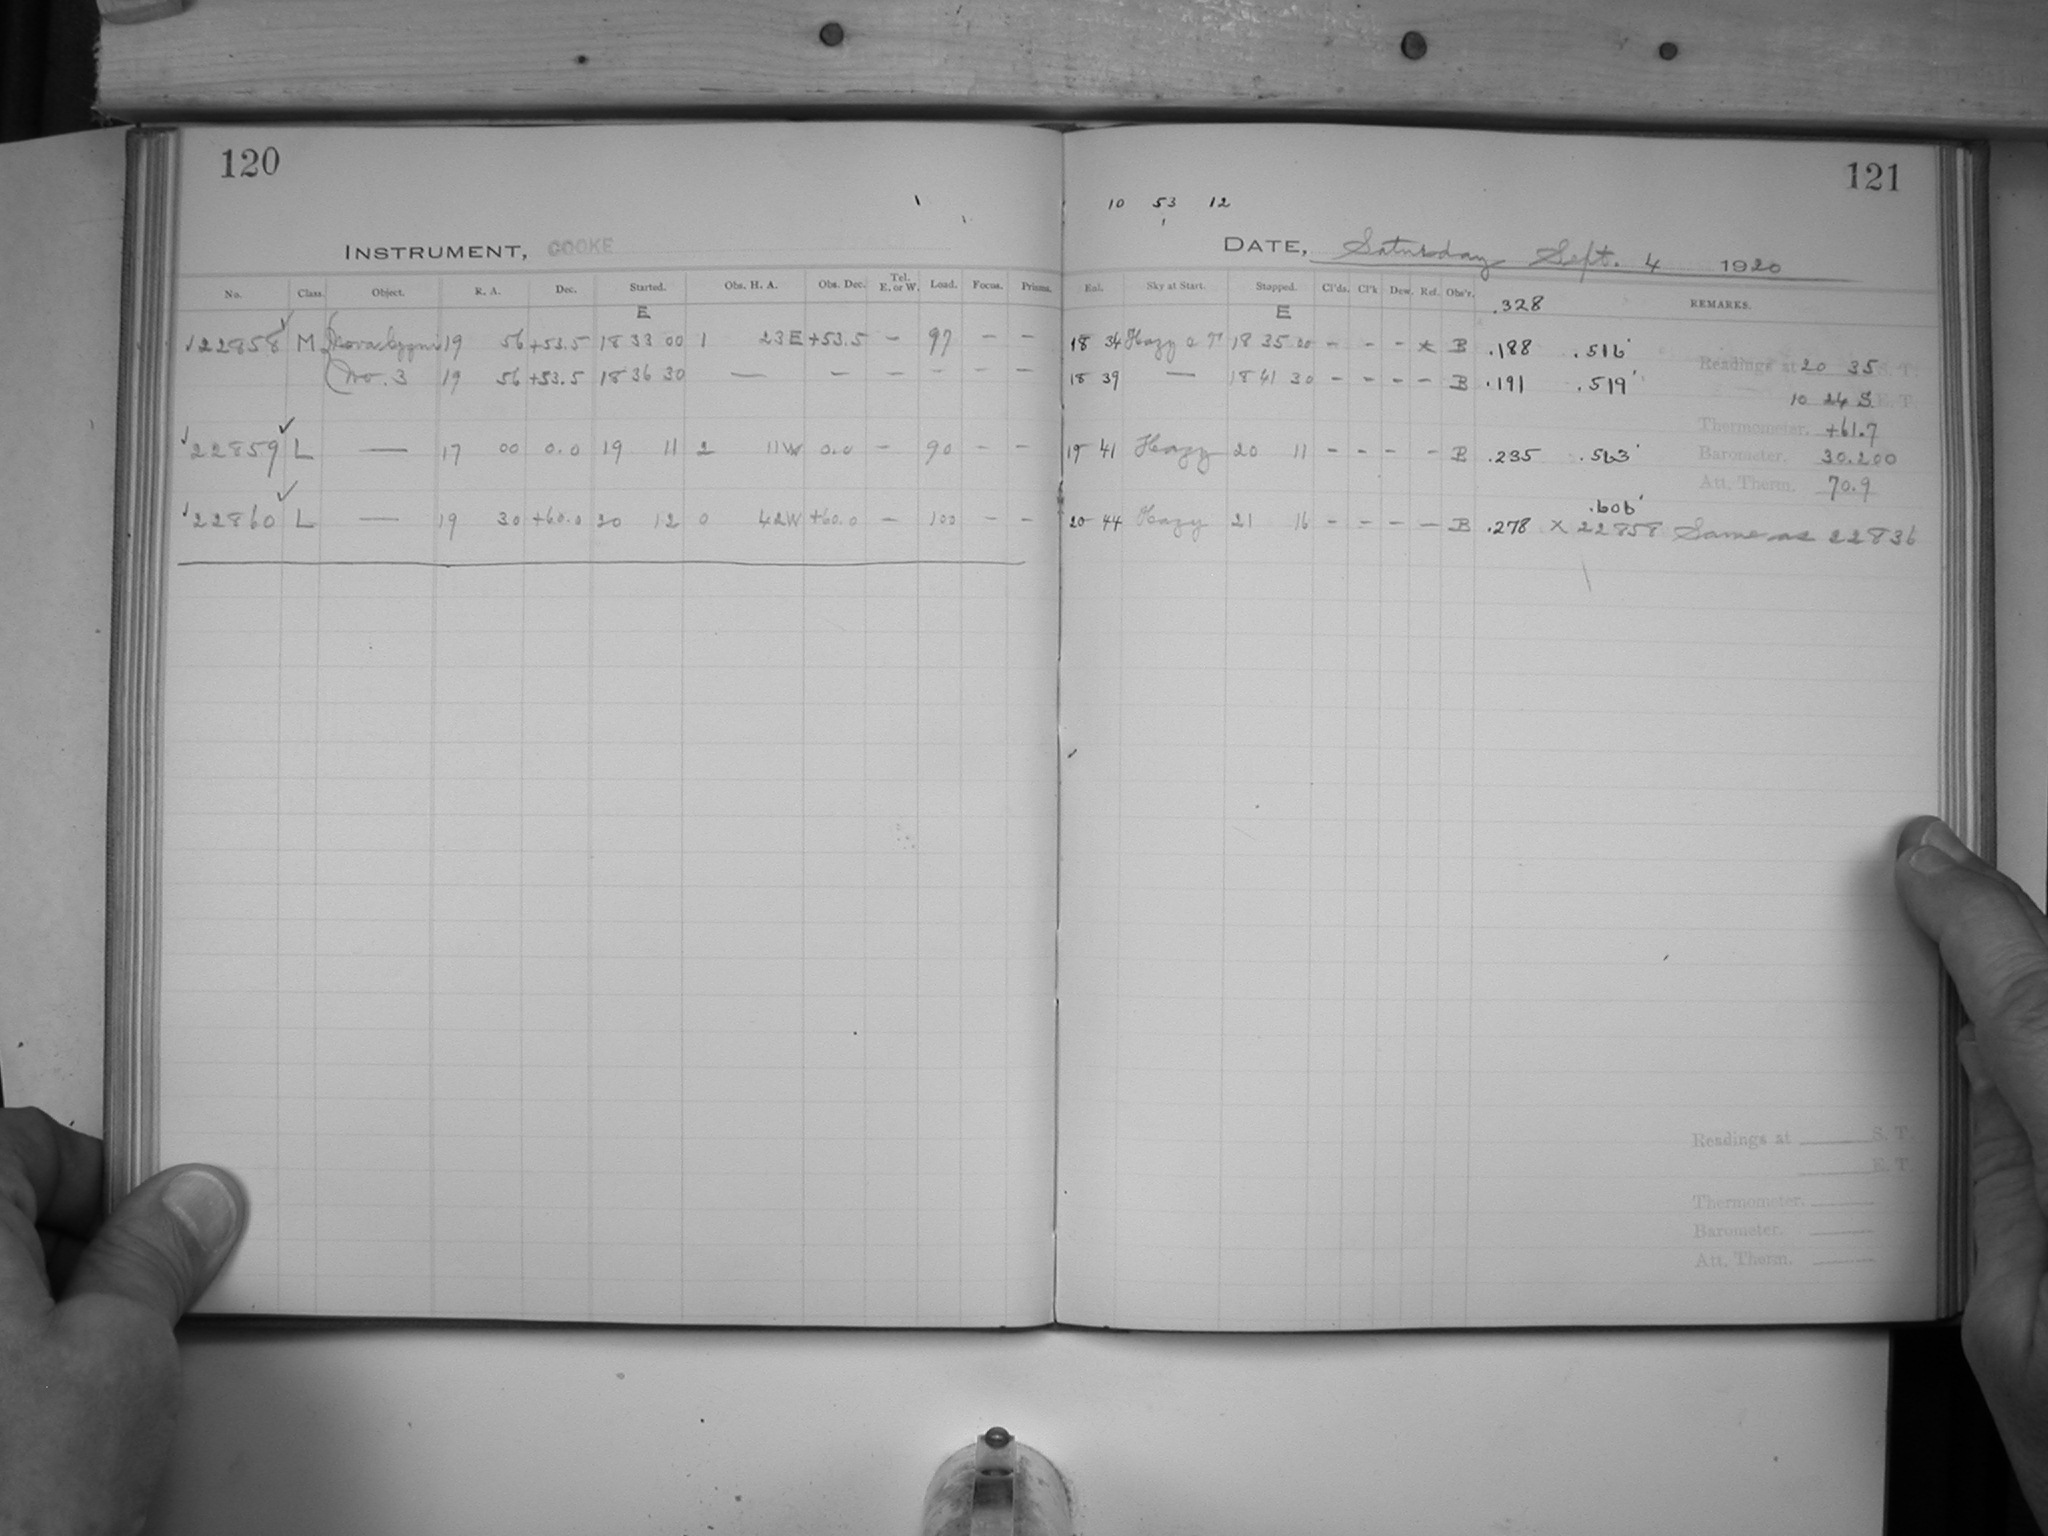 120
INSTRUMENT, COOKE
No. Class. Object. R. A. Dec. Started. Obs. H. A. Obs. Dec. Tel. E. or W. Load. Focus. Prisms.
E
22858 M Nova Cygni 19 56 +53.5 18 33 00 1 23 E +53.5 – 97 – –
No. 3 19 56 +53.5 18 36 30 — – – – – –
22859 L — 17 00 0.0 19 11 2 11 W 0.0 – 90 – –
22860 L — 19 30 +60.0 20 12 0 42 W +60.0 – 100 – –
121
10 53 12
DATE, Saturday Sept. 4 1920
Sky at Start. Stopped. Cl'ds. Cl'k Dew. Rel. Obs'r. .328 REMARKS.
E
18 34 Hazy 18 35 00 – – – * B .188 .516
Readings at 20 35 S. T.
18 39 — 18 41 30 – – – – B .191 .519
10 24 S. E. T.
Thermometer. +61.7
19 41 Hazy 20 11 – – – – B .235 .563
Barometer. 30.200
Att. Therm. 70.9
.606
20 44 Hazy 21 16 – – – – B .278 x 22858 Same as 22836
Readings at S. T.
E. T.
Thermometer.
Barometer.
Att. Therm.